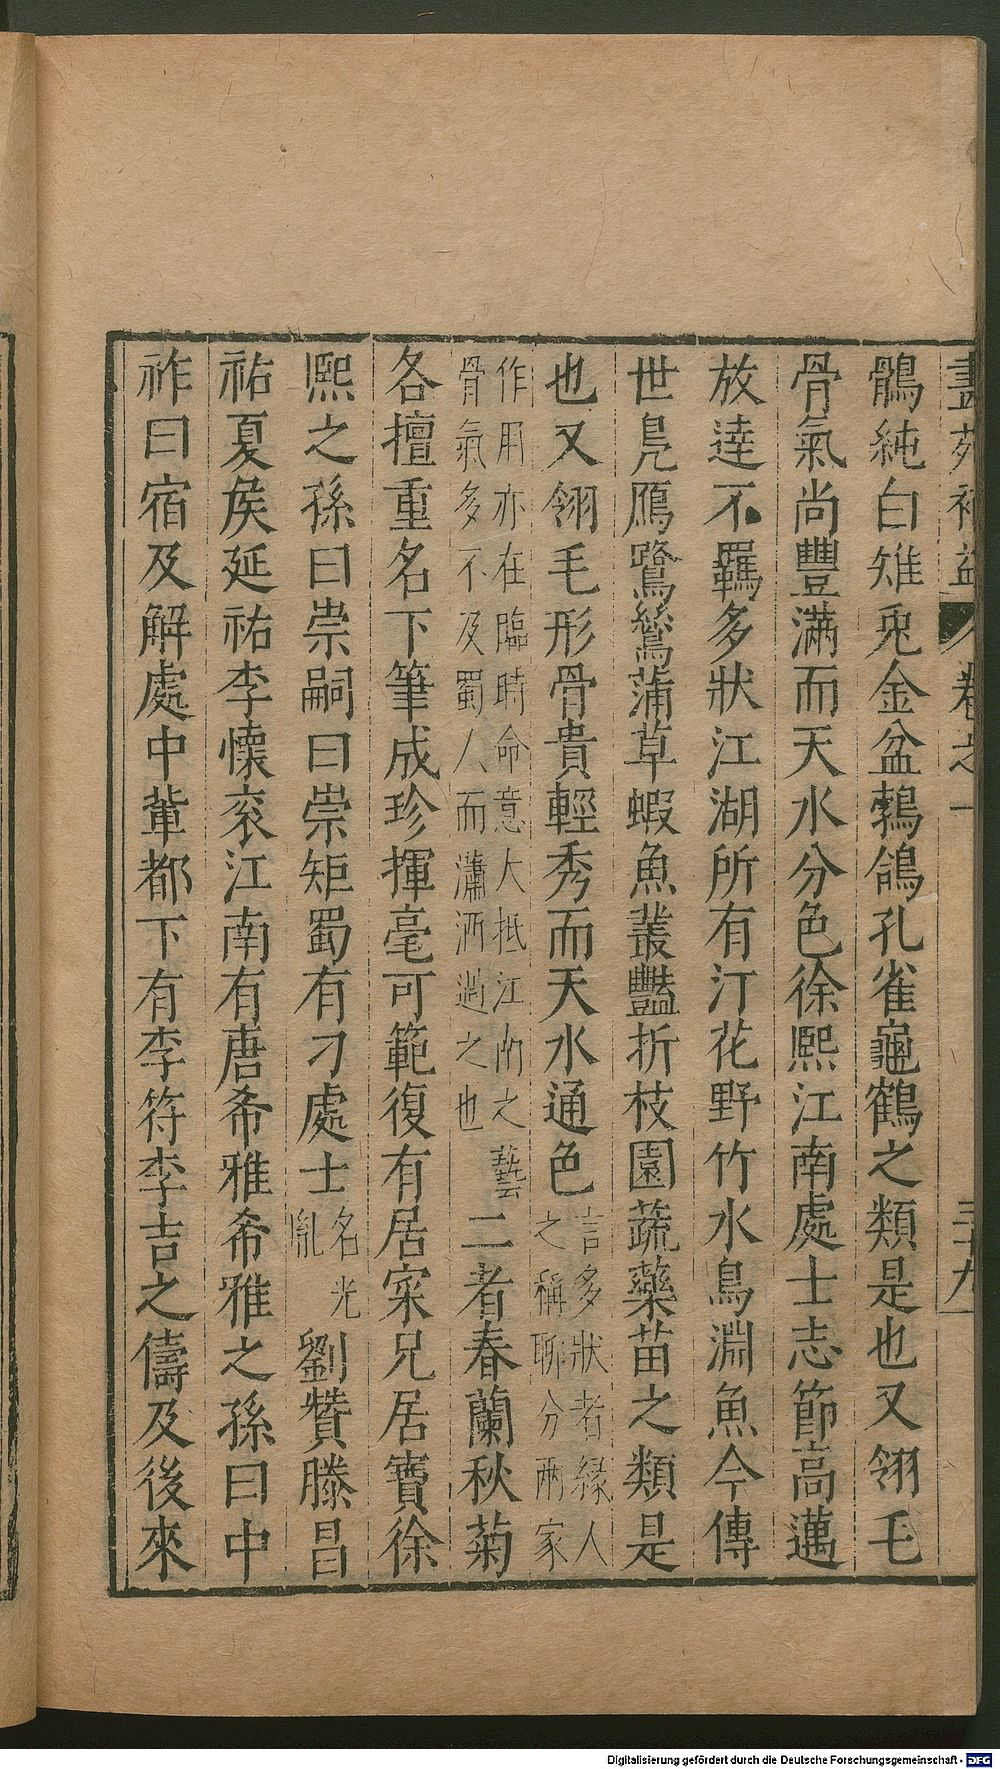 畫苑補益 卷之一 三十九
鶻純白雉兎金盆鵓鴿孔雀龜鶴之類是也又翎毛
骨氣尚豐滿而天水分色徐熙江南處士志節高邁
放達不羈多狀江湖所有汀花野竹水鳥淵魚今傳
世鳧鴈鷺鷥蒲草蝦魚叢豔折枝園蔬藥苗之類是
也又翎毛形骨貴輕秀而天水通色言多狀者緣人之稱聊分兩家
作用亦在臨時命意大抵江南之藝骨氣多不及蜀人而瀟洒過之也二者春蘭秋菊
各擅重名下筆成珍揮毫可範復有居寀兄居寶徐
熙之孫曰崇嗣曰崇矩蜀有刁處士名光胤劉贊滕昌
祐夏侯延祐李懷衮江南有唐希雅希雅之孫曰中
祚曰宿及解處中輩都下有李符李吉之儔及後來
Digitalisierung gefördert durch die Deutsche Forschungsgemeinschaft - DFG